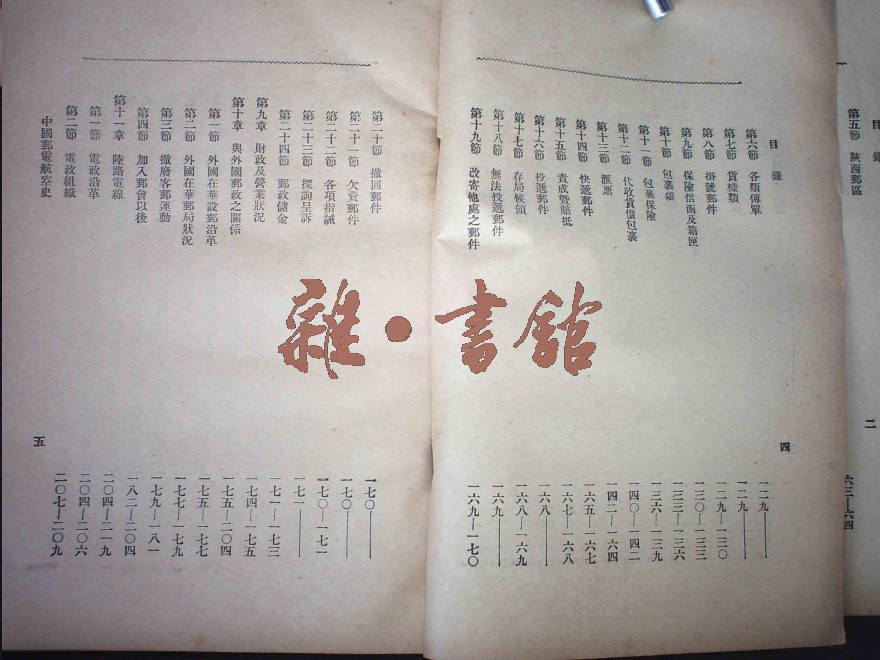 目錄
第五節 陝西郵區 六三—六四
二
目錄
四
第六節 各類傳單 一二九——
第七節 貨樣類 一二九——
第八節 掛號郵件 一二九—一三〇
第九節 保險信函及箱匣 一三〇—一三三
第十節 包裹類 一三三—一三六
第十一節 包裹保險 一三六—一三九
第十二節 代收貨價包裹 一四〇—一四二
第十三節 滙票 一四二—一六四
第十四節 快遞郵件 一六五—一六七
第十五節 責成暨賠抵 一六七—一六八
第十六節 投遞郵件 一六八——
第十七節 存局候領 一六八—一六九
第十八節 無法投遞郵件 一六九——
第十九節 改寄他處之郵件 一六九—一七〇
第二十節 撤回郵件 一七〇——
第二十一節 欠資郵件 一七〇——
第二十二節 各項指誡 一七〇—一七一
第二十三節 探詢呈訴 一七一——
第二十四節 郵政儲金 一七一—一七三
第九章 財政及營業狀況 一七四—一七五
第十章 與外國郵政之關係 一七五—二〇四
第一節 外國在華設郵沿革 一七五—一七七
第二節 外國在華郵局狀況 一七七—一七九
第三節 撤廢客郵運動 一七九—一八一
第四節 加入郵會以後 一八二—二〇四
第十一章 陸路電線 二〇四—二一九
第一節 電政沿革 二〇四—二〇六
第二節 電政組織 二〇七—二〇九
中國郵電航空史
五
雜·書館